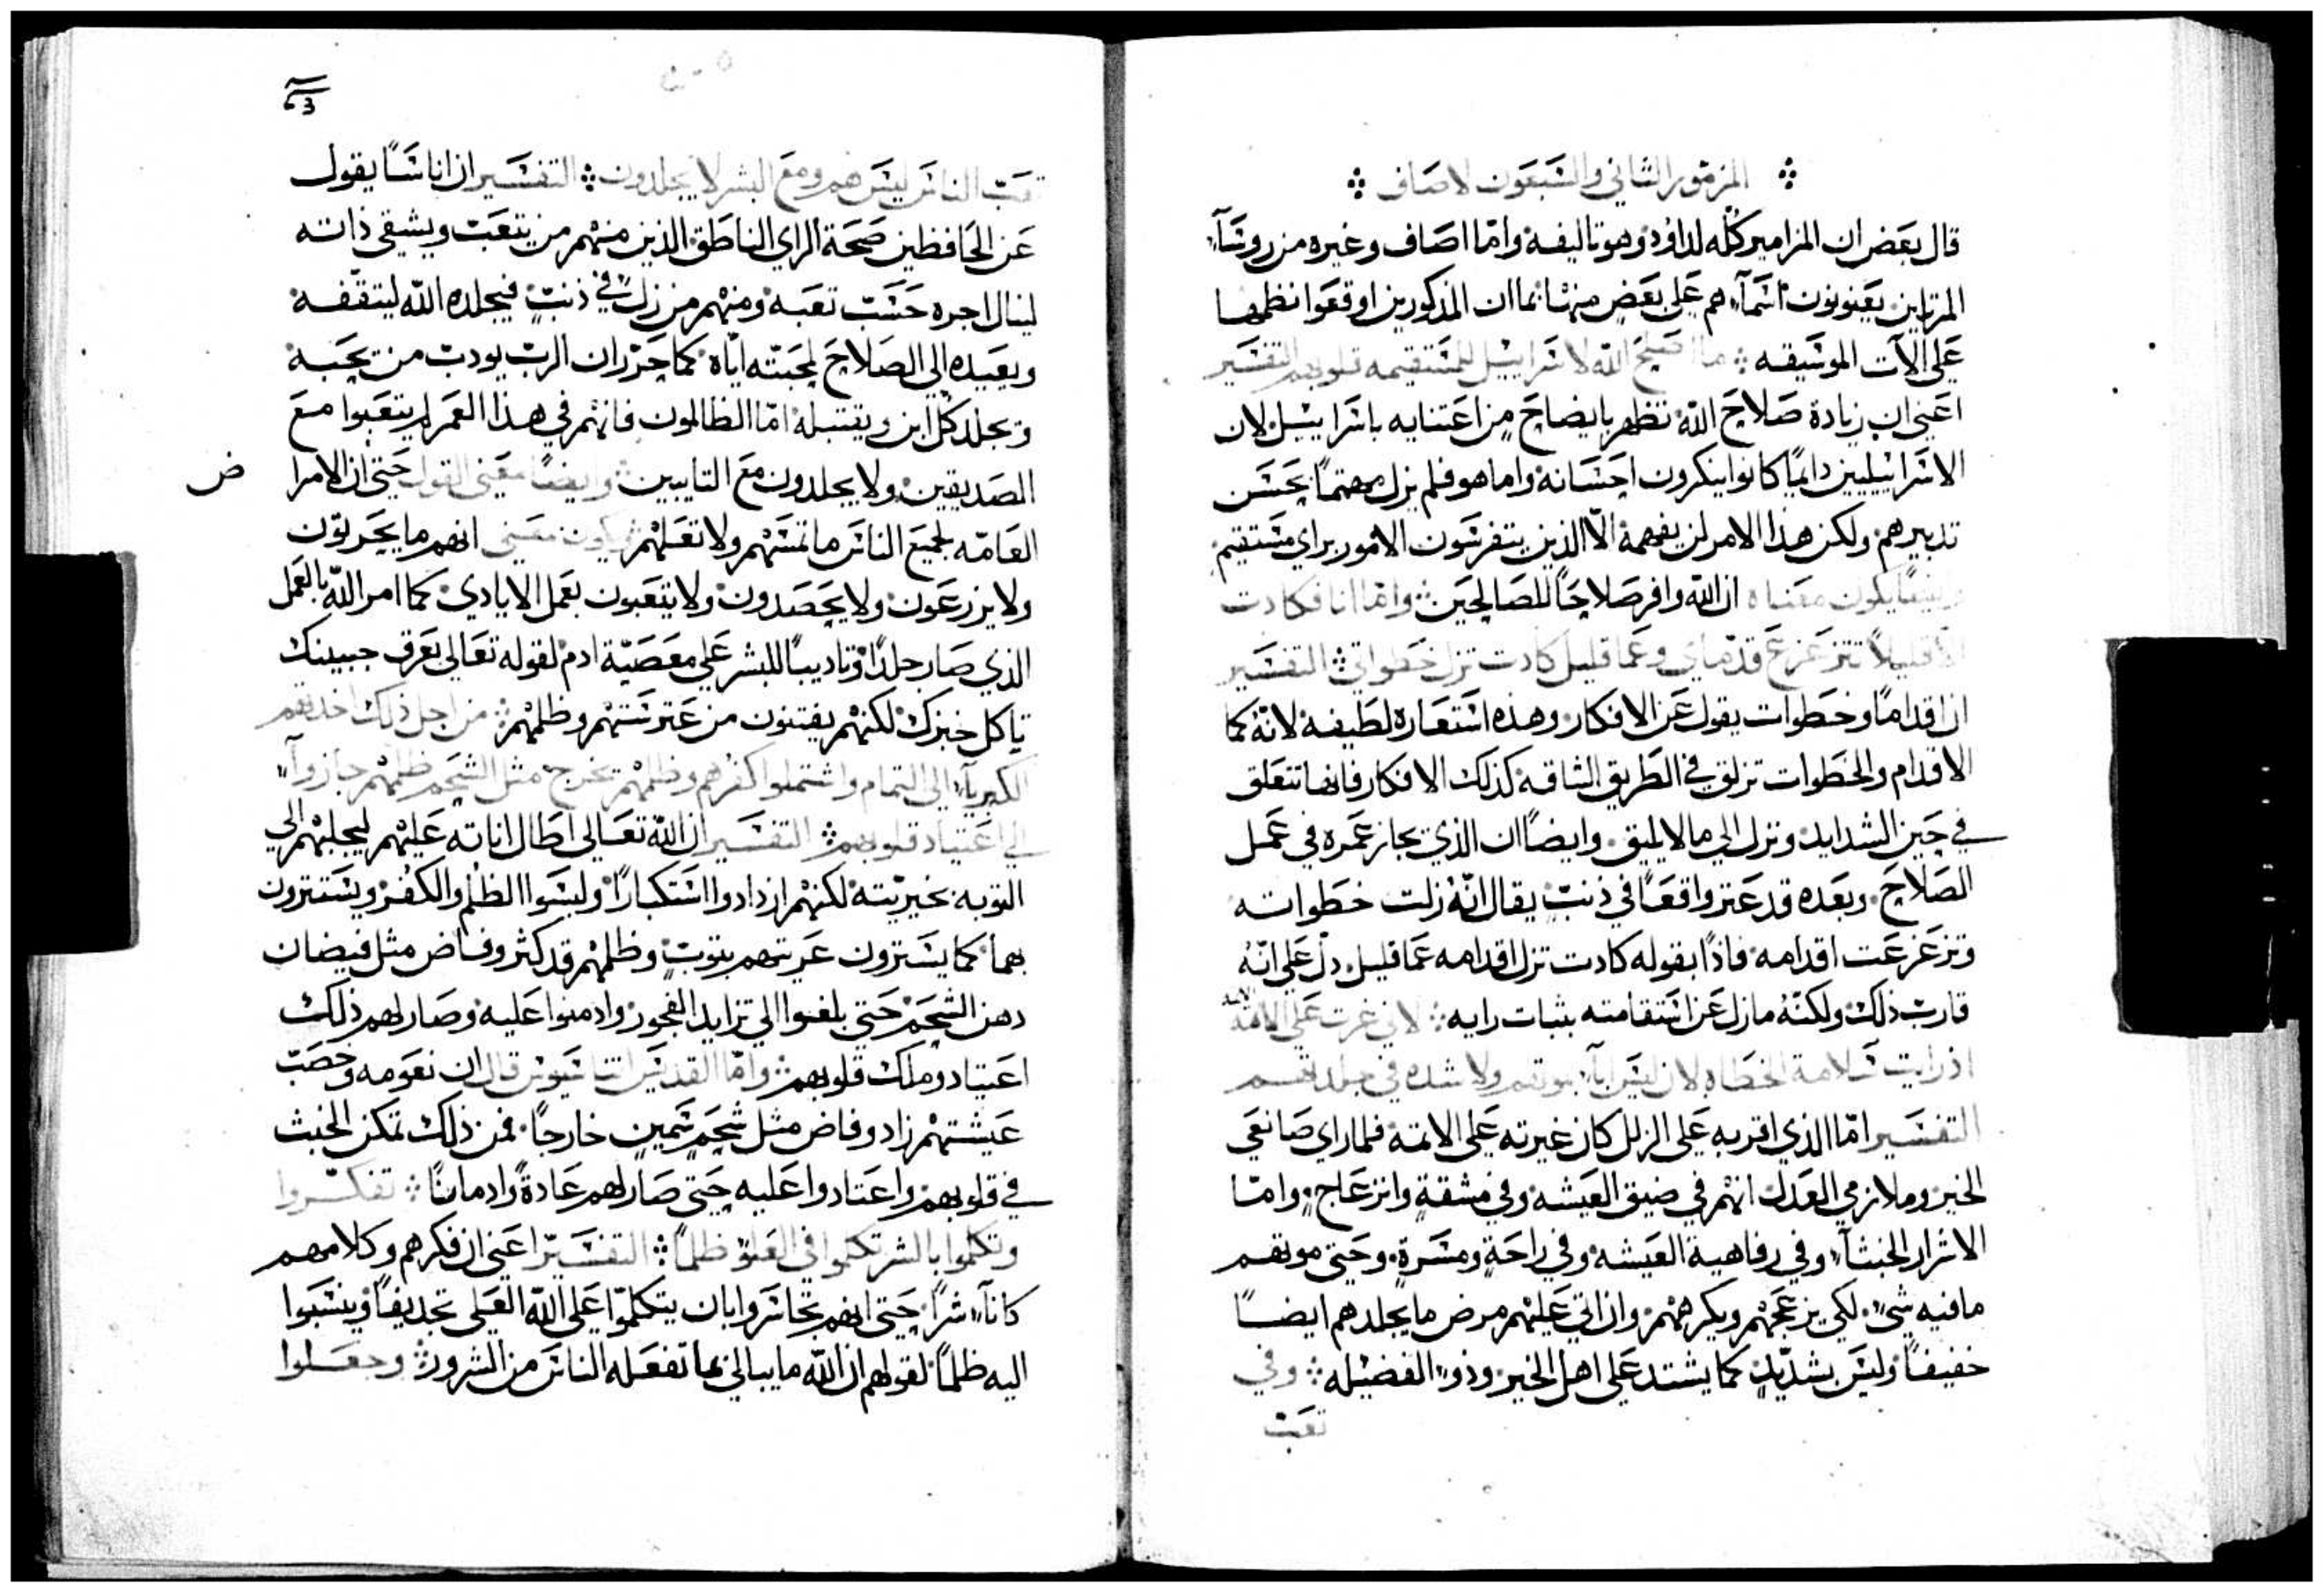 المزمور الثاني والسبعون لاصاف
قال بعض ان المزامير كله لداوُد وهو تاليفه وامّا اصاف وغيره من روسآء
المرتلين يعنونون اسمآءهم على بعض منها بما ان المذكورين اوقعوا نظمها
على الآت الموسيقه ما اصلح الله لاسراييل للمستقيمه قلوبهم التفسير
اعني ان زيادة صلاح الله تظهر بايضاح من اعتنايه باسراييل لان
الاسرائيليين دايمًا كانوا ينكرون احسانه واما هو فلم يزل مهتمًا بحسن
تدبيرهم ولكن هذا الامر لن يفهمه الّا الذين يتفرسون الامور براي مستقيم
وايضًا يكون معناه ان الله وافر صلاحًا للصالحين وامّا انا فكادت
الّا قليلًا تتزعزع قدماي وعما قليل كادت تزل خطواتي التفسير
ان اقدامًا وخطوات يقول عن الافكار وهذه استعاره لطيفه لانهُ كما
الاقدام والخطوات تزلق في الطريق الشاقه كذلك الافكار فانها تتعلق
في حين الشدايد وتزل الى ما لا يليق وايضًا ان الذي يجاز عمره في عمل
الصلاح وبعده قد عثر واقعًا في ذنبٍ يقال انّهُ زلت خطواته
وتزعزعت اقدامه فاذًا بقوله كادت تزل اقدامه عما قليل دل على انّهُ
قارب ذلك ولكنّهُ ما زل عن استقامته بثبات رايه لاني غرت على الاثمه
اذ رايت سلامة الخطاه لان ليس اباء بموتهم ولا شده في جلدتهم
التفسير امّا الذي اقر به على الزلل كان غيرته على الاثمه فلما راي صانعي
الخير وملازمي العدل انهم في ضيق العيشه وفي مشقةٍ وانزعاجٍ وامّا
الاشرار الخبثآء وفي رفاهية العيشه وفي راحةٍ ومسرةٍ وحتى موتهم
ما فيه شيٌ لكي يزعجهم ويكرههم وان اتي عليهم مرض ما يجلدهم ايضًا
خفيفًا وليس بشديدٍ كما يشتد على اهل الخير وذو الفضيله وفي
تعب
تعب الناس ليس هم ومع البشر لا يجلدون التفسير ان اناسًا يقول
عن الحافظين صحة الراي الناطق الذين منهم من يتعب ويشقي ذاته
لينال اجره حسب تعبه ومنهم من زل في ذنبٍ فيجلده الله ليثقفه
ويعيده الى الصلاح لمحبته ايّاه كما حرّر ان الرب يودب من يحبه
ويجلد كل ابن ويقتبله امّا الظالمون فانهم في هذا العمر لم يتعبوا مع
الصديقين ولا يجلدون مع التايبين وايضًا معنى القول حتى ان الامرا
ض
العامّه لجميع الناس ما تمسهم ولا تعلهم ويكون معنى انهم ما يحرثون
ولا يزرعون ولا يحصدون ولا يتعبون بعمل الايادي كما امر الله بالعمل
الذي صار جلدًا وتاديبًا للبشر على معصيّة ادم لقوله تعالى بعرق جبينك
تاكل خبزك لكنهم يفتنون من غترستهم وظلمهم من اجل ذلك اخذتهم
الكبريآء الى التمام واشتملوا كفرهم وظلمهم يخرج مثل الشحم ظلمهم جازوآ
الى اعتياد قلوبهم التفسير ان الله تعالى اطال اناته عليهم ليجلبهم الى
التوبه بخيريّته لكنهم ازدادوا استكبارًا ولبسوا الظلم والكفر ويستترون
بهما كما يسترون عريتهم بثوبٍ وظلمهم قد كثر وفاض مثل فيضان
دهن الشحم حتى بلغوا الى تزايد الفجور وادمنوا عليه وصار لهم ذلك
اعتياد وملك قلوبهم وامّا القديس اثناسيوس قال ان نعومه وخصب
عيشتهم زاد وفاض مثل شحمٍ سمينٍ خارجًا فمن ذلك تمكن الخبث
في قلوبهم واعتادوا عليه حتى صار لهم عادةً وادمانًا تفكّروا
وتكلموا بالشر تكلموا في العلوّ ظلمًا التفسير اعني ان فكرهم وكلامهم
كانآ شرًا حتى انهم تجاسروا بان يتكلموا على الله العلي تجديفًا وينسبوا
اليه ظلمًا لقولهم ان الله ما يبالي بما تفعله الناس من الشرور وجعلوا